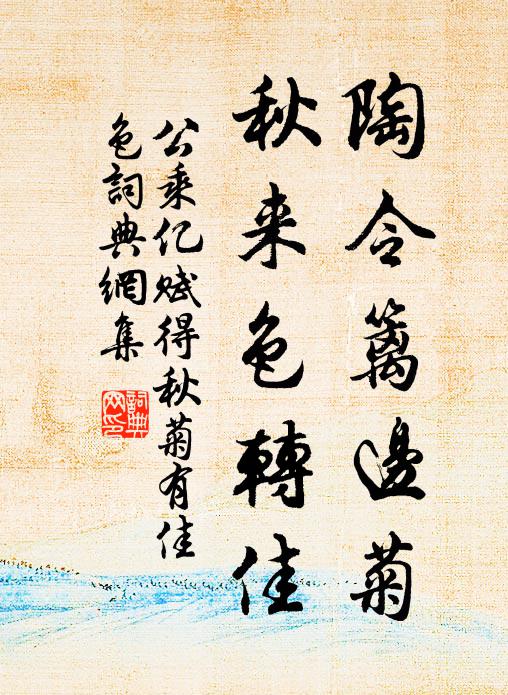 陶令篱邊菊
秋来色轉佳
公乘亿赋得秋菊有佳
色詞典網集
詞典
网印